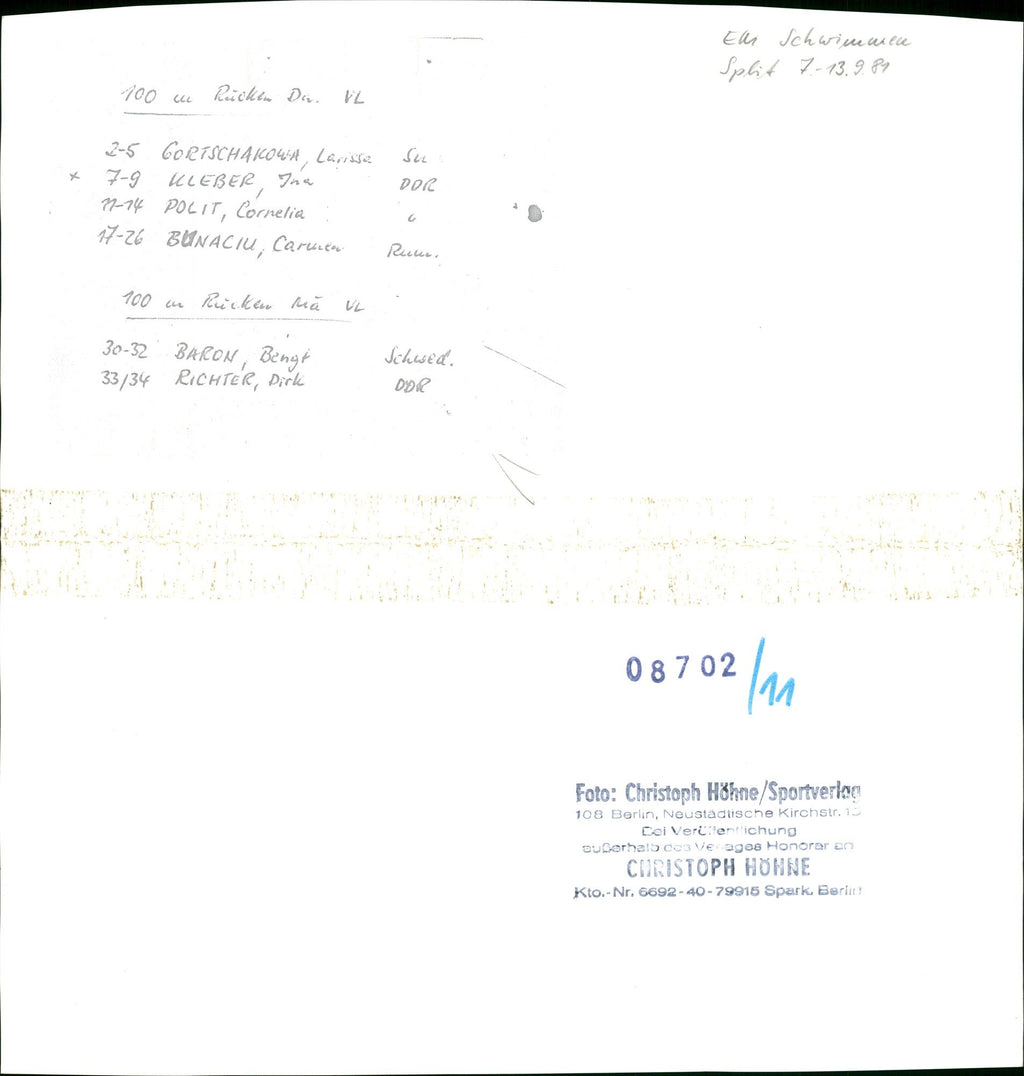 EM Schwimmen
Split 7.-13.9.81
100 m Rücken Da. VL
2-5 GORTSCHAKOWA, Larissa SU
x 7-9 KLEBER, Ina DDR
11-14 POLIT, Cornelia "
17-26 BUNACIU, Carmen Rum.
100 m Rücken Mä VL
30-32 BARON, Bengt Schwed.
33/34 RICHTER, Dirk DDR
08702/11
Foto: Christoph Höhne/Sportverlag
108 Berlin, Neustädtische Kirchstr. 15
Bei Veröffentlichung
außerhalb des Verlages Honorar an
CHRISTOPH HÖHNE
Kto.-Nr. 6692-40-79915 Spark. Berlin